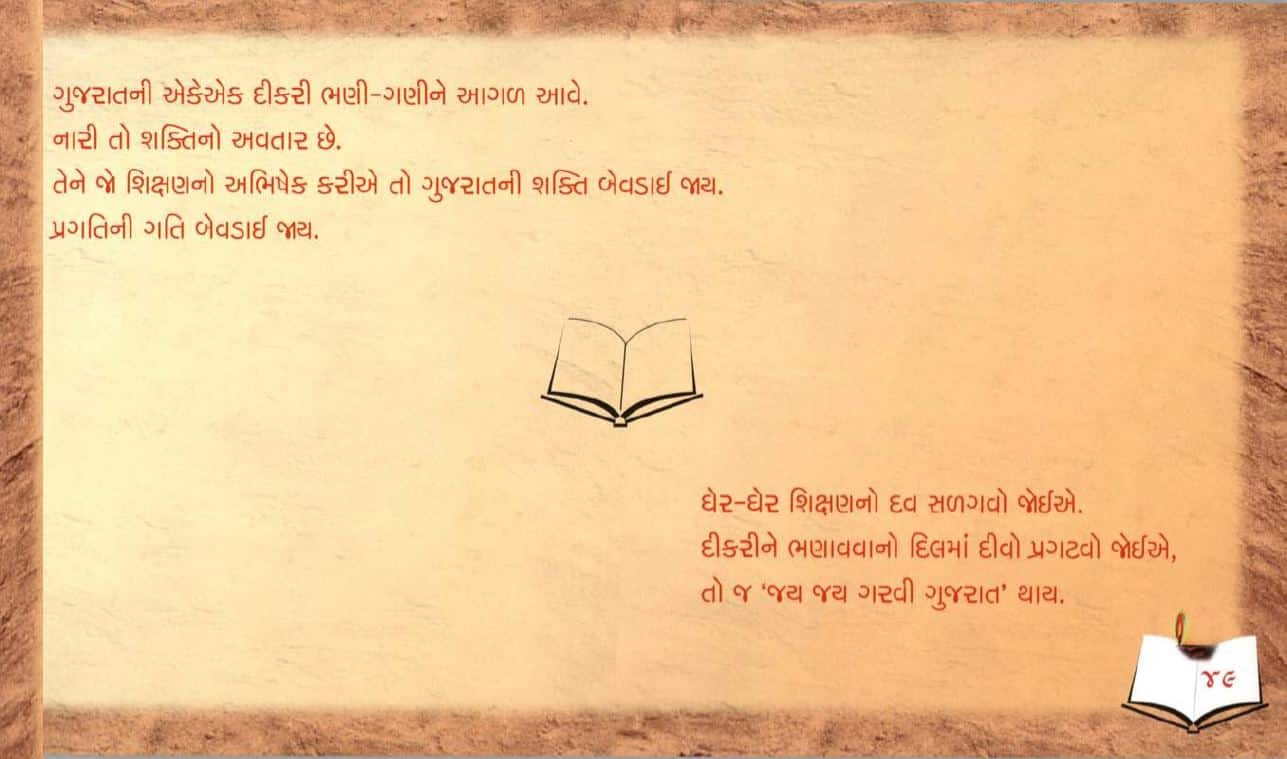 ગુજરાતની એકેએક દીકરી ભણી-ગણીને આગળ આવે.
નારી તો શક્તિનો અવતાર છે.
તેને જો શિક્ષણનો અભિષેક કરીએ તો ગુજરાતની શક્તિ બેવડાઈ જાય.
પ્રગતિની ગતિ બેવડાઈ જાય.
ઘેર-ઘેર શિક્ષણનો દવ સળગવો જોઈએ.
દીકરીને ભણાવવાનો દિલમાં દીવો પ્રગટવો જોઈએ,
તો જ ‘જય જય ગરવી ગુજરાત’ થાય.
૪૯